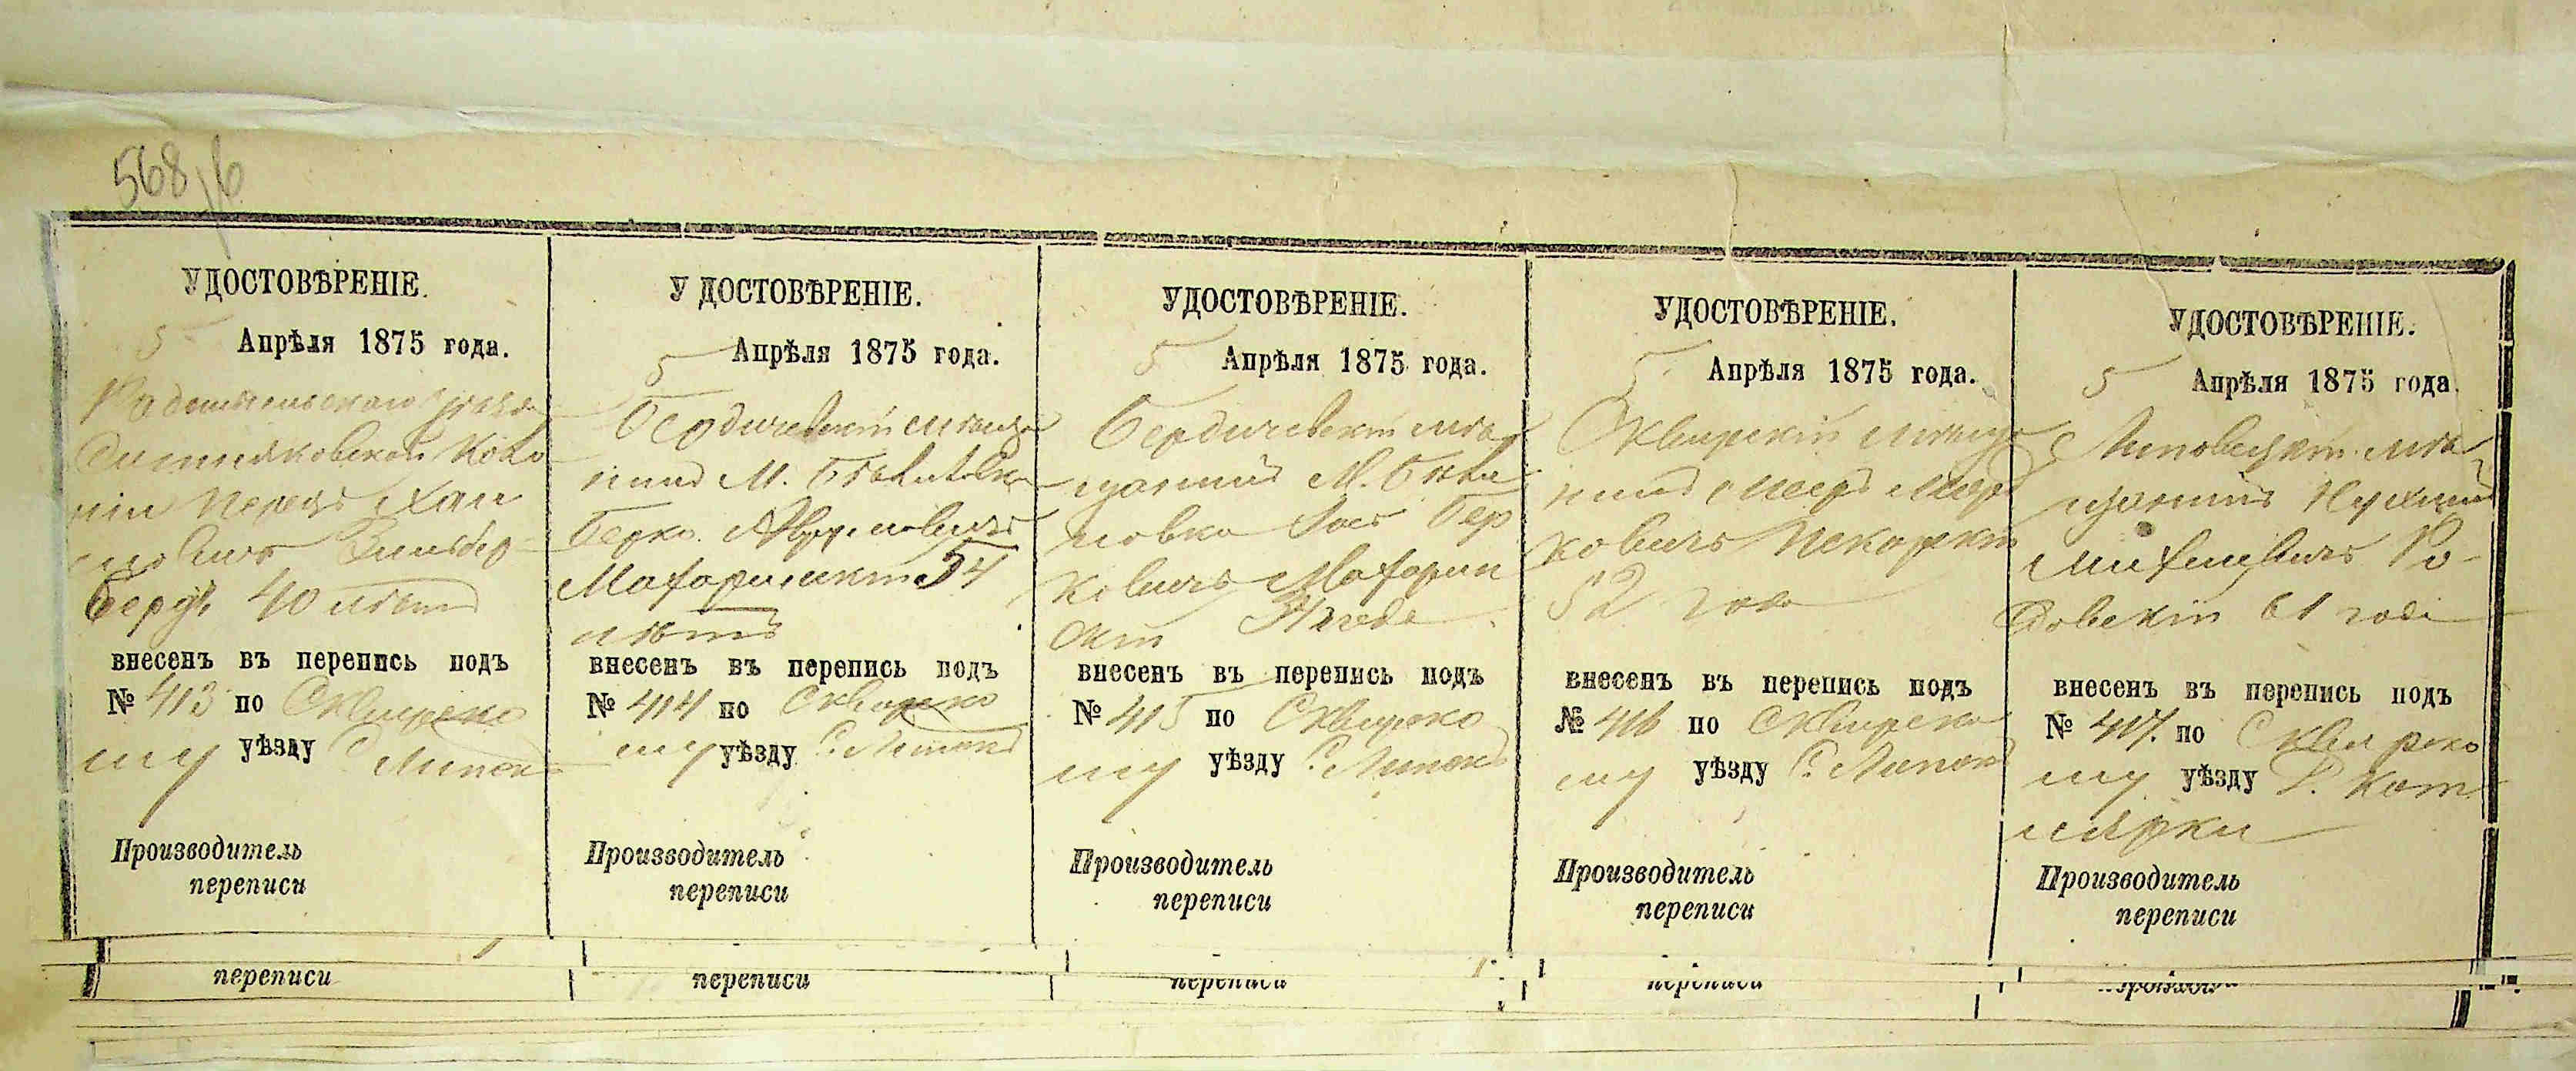 568
УДОСТОВѢРЕНІЕ.
5 Апрѣля 1875 года.
Радомысльскаго уѣзда
коло
ніи Перецъ Хаи
мовичъ Зильбер-
бердъ 40 лѣтъ
внесенъ въ перепись подъ
№ 413 по Сквирско
му уѣзду С. Липки
Производитель
переписи
УДОСТОВѢРЕНІЕ.
5 Апрѣля 1875 года.
Бердичевскій мѣща
нинъ М. Бѣлиловка
Берко
54
лѣтъ
внесенъ въ перепись подъ
№ 414 по Сквирско
му уѣзду С. Липки
Производитель
переписи
УДОСТОВѢРЕНІЕ.
5 Апрѣля 1875 года.
Бердичевскій мѣ
щанинъ М. Бѣли
ловка Бер
ковичъ
года
внесенъ въ перепись подъ
№ 415 по Сквирско
му уѣзду С. Липки
Производитель
переписи
УДОСТОВѢРЕНІЕ.
5 Апрѣля 1875 года.
Сквирскій мѣща
нинъ Мееръ Мор
ковичъ Пекарскій
52 года
внесенъ въ перепись подъ
№ 416 по Сквирско
му уѣзду С. Липки
Производитель
переписи
УДОСТОВѢРЕНІЕ.
5 Апрѣля 1875 года.
Липовецкій мѣ
щанинъ Нухимъ
Ро-
довскій 61 года
внесенъ въ перепись подъ
№ 417. по Сквирско
му уѣзду Р. Кот
лярки
Производитель
переписи
переписи
переписи
переписи
переписи